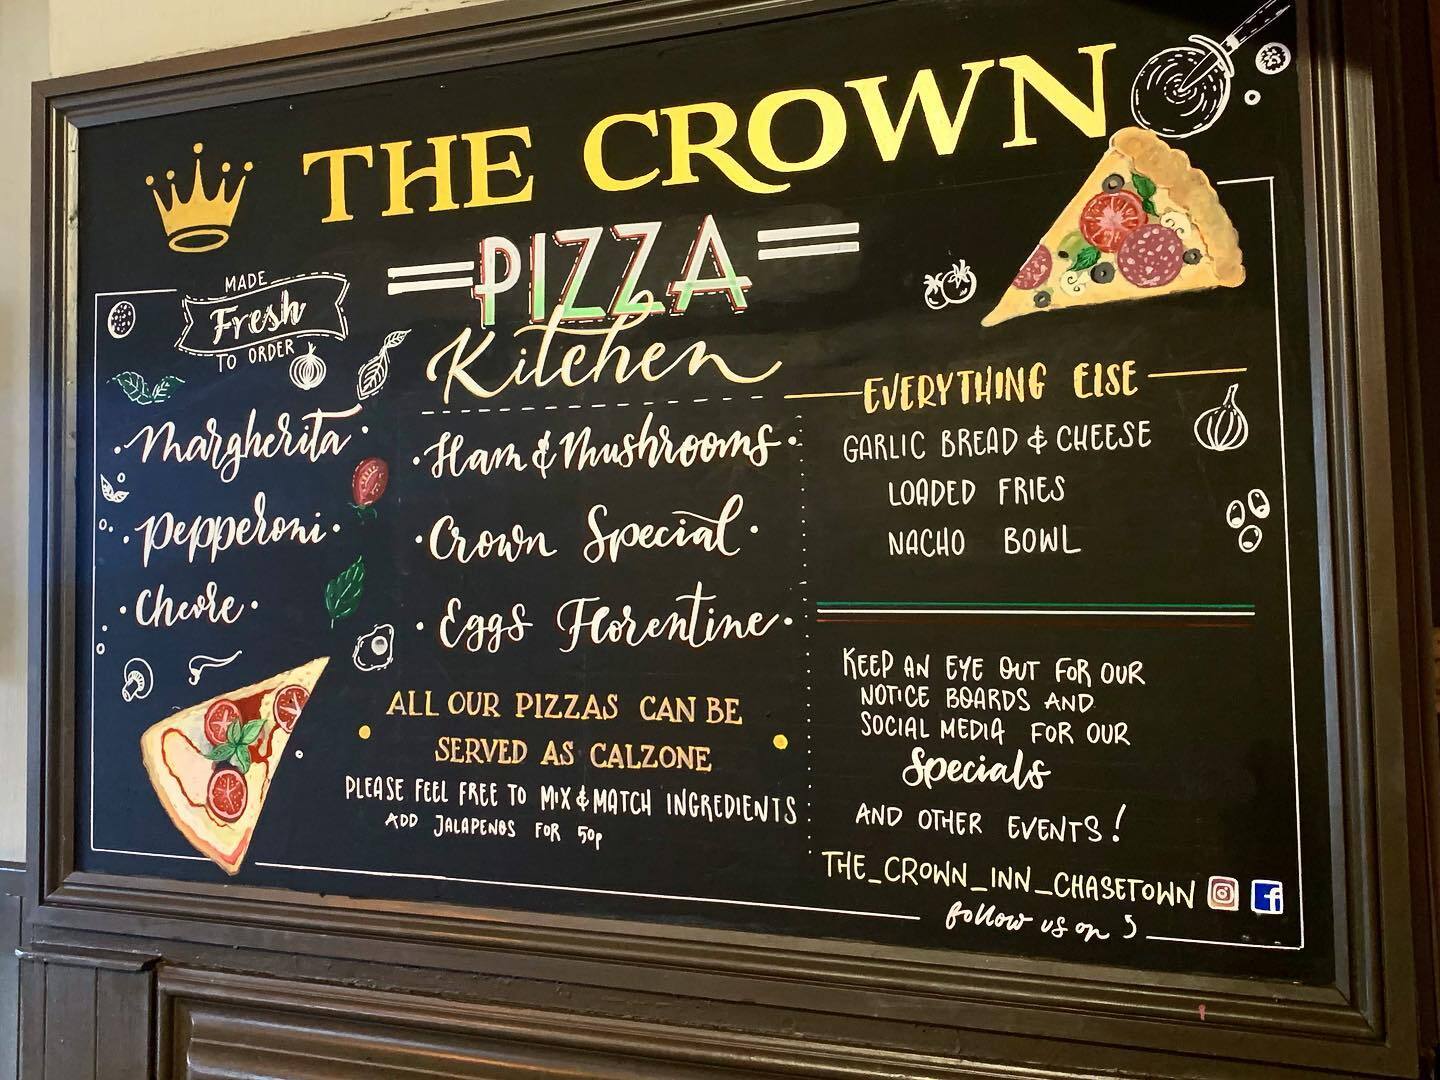 THE CROWN
PIZZA
Kitchen
MADE
Fresh
TO ORDER
• Margherita •
• Pepperoni •
• Cheore •
• Ham & Mushrooms •
• Crown Special •
• Eggs Florentine •
ALL OUR PIZZAS CAN BE
SERVED AS CALZONE
PLEASE FEEL FREE TO MIX & MATCH INGREDIENTS
ADD JALAPENOS FOR 50p
EVERYTHING ELSE
GARLIC BREAD & CHEESE
LOADED FRIES
NACHO BOWL
KEEP AN EYE OUT FOR OUR
NOTICE BOARDS AND
SOCIAL MEDIA FOR OUR
Specials
AND OTHER EVENTS!
THE_CROWN_INN_CHASETOWN
follow us on